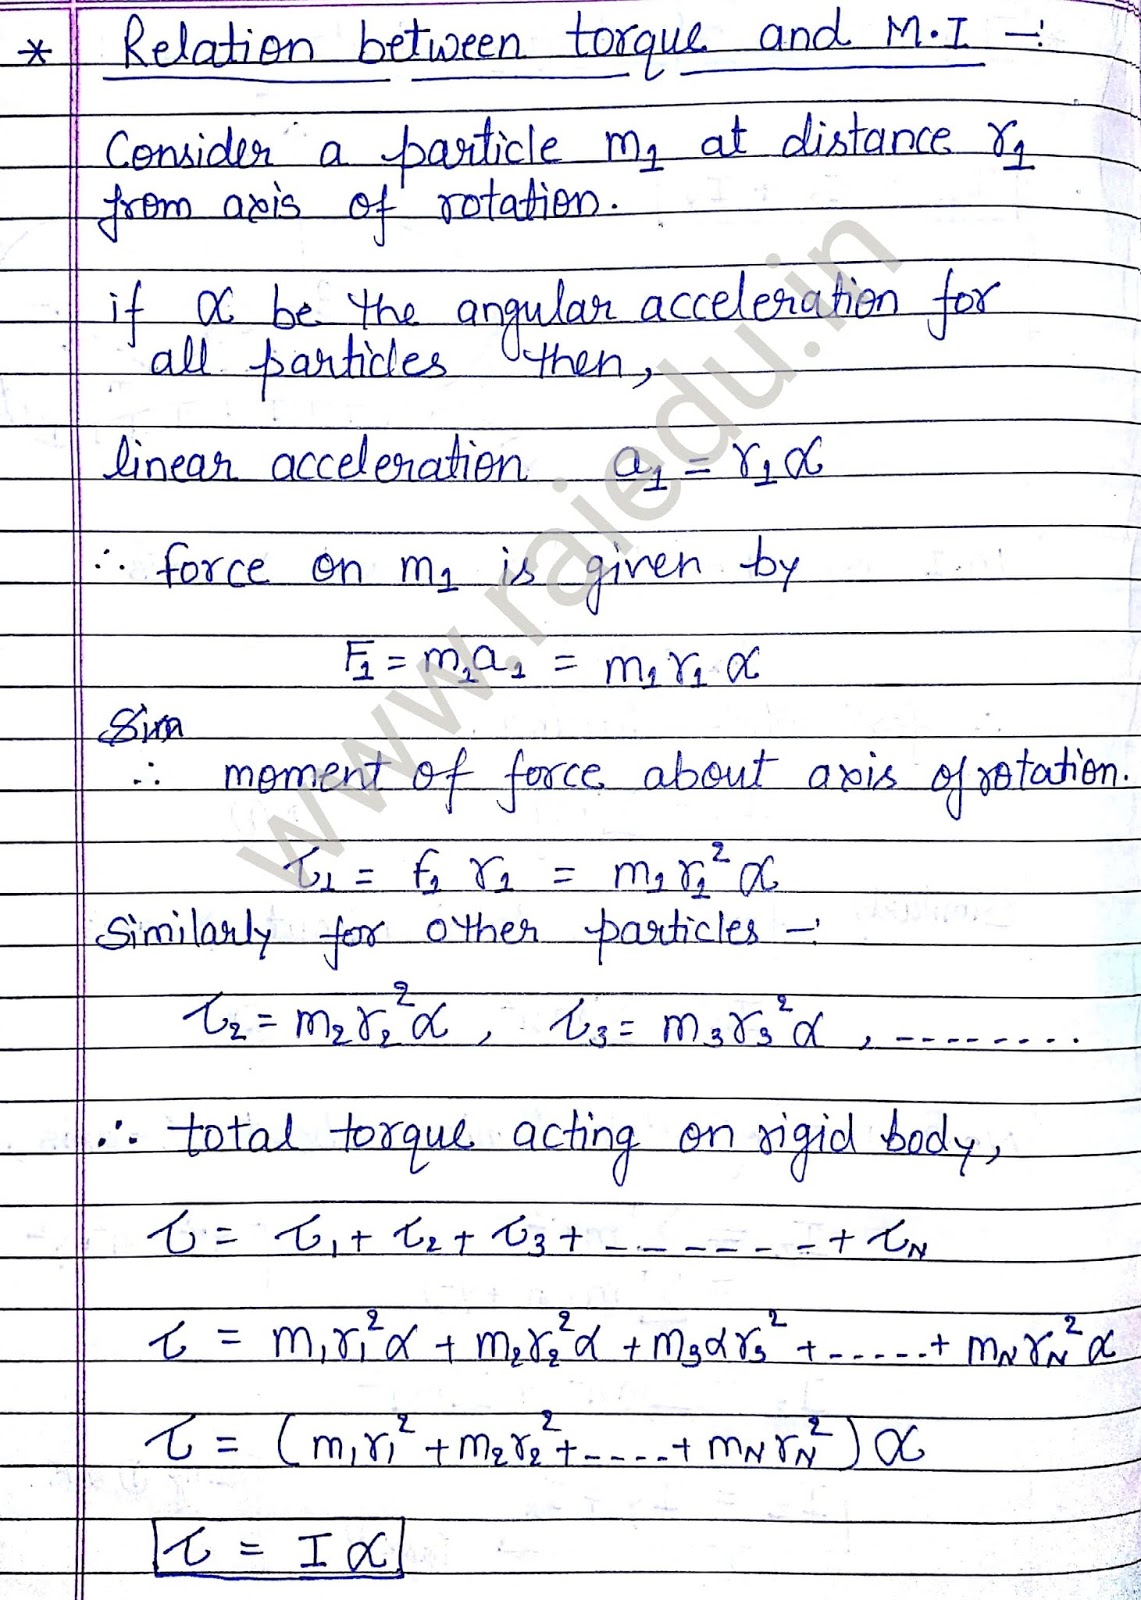 * Relation between torque and M.I –:
Consider a particle m₁ at distance r₁
from axis of rotation.
if α be the angular acceleration for
all particles then,
linear acceleration a₁ = r₁α
∴ force on m₁ is given by
F₁ = m₁a₁ = m₁r₁α
Sim
∴ moment of force about axis of rotation.
τ₁ = f₁ r₁ = m₁r₁²α
Similarly for other particles –:
τ₂ = m₂r₂²α , τ₃ = m₃r₃²α , --------
∴ total torque acting on rigid body,
τ = τ₁ + τ₂ + τ₃ + ------- + τN
τ = m₁r₁²α + m₂r₂²α + m₃αr₃² + ----- + mNrN²α
τ = (m₁r₁² + m₂r₂² + ---- + mNrN²) α
τ = I α
www.raiedu.in